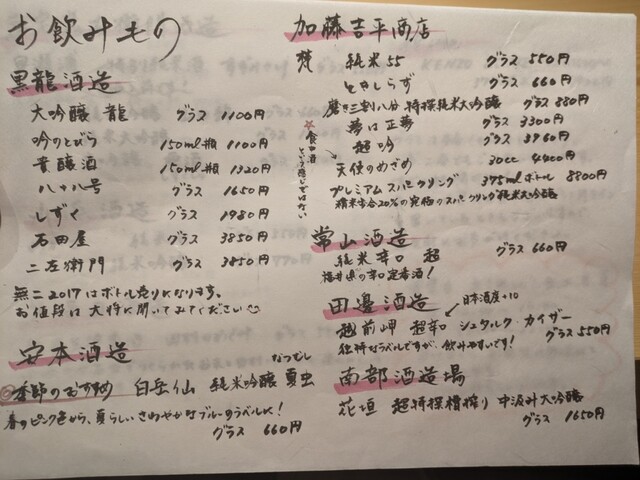 お飲みもの
黒龍酒造
大吟醸 龍 グラス 1100円
吟のとびら 150ml瓶 1100円
貴醸酒 150ml瓶 1320円
八十八号 グラス 1650円
しずく グラス 1980円
石田屋 グラス 3850円
二左衛門 グラス 3850円
無二2017はボトル売りになります。
お値段は大将に聞いてみてください
安本酒造
なつむし
◎季節のおすすめ 白岳仙 純米吟醸 夏虫
春のピンク色から、夏らしいさわやかなブルーのラベルに!
グラス 660円
加藤吉平商店
梵 純米55 グラス 550円
ときしらず グラス 660円
磨き三割八分 特撰純米大吟醸 グラス 880円
夢は正夢 グラス 3300円
超吟 グラス 3960円
☆食中酒という感じではない
天使のめざめ 30cc 4400円
プレミアムスパークリング 375mlボトル 8800円
精米歩合20%の究極のスパークリング純米大吟醸
常山酒造
純米辛口 超 グラス 660円
福井県の辛口定番酒!
田邊酒造
日本酒度+10
越前岬 超辛口 シュタルク カイザー
独特なラベルですが、飲みやすいです! グラス550円
南部酒造場
花垣 超特撰槽搾り 中汲み大吟醸
グラス 1650円